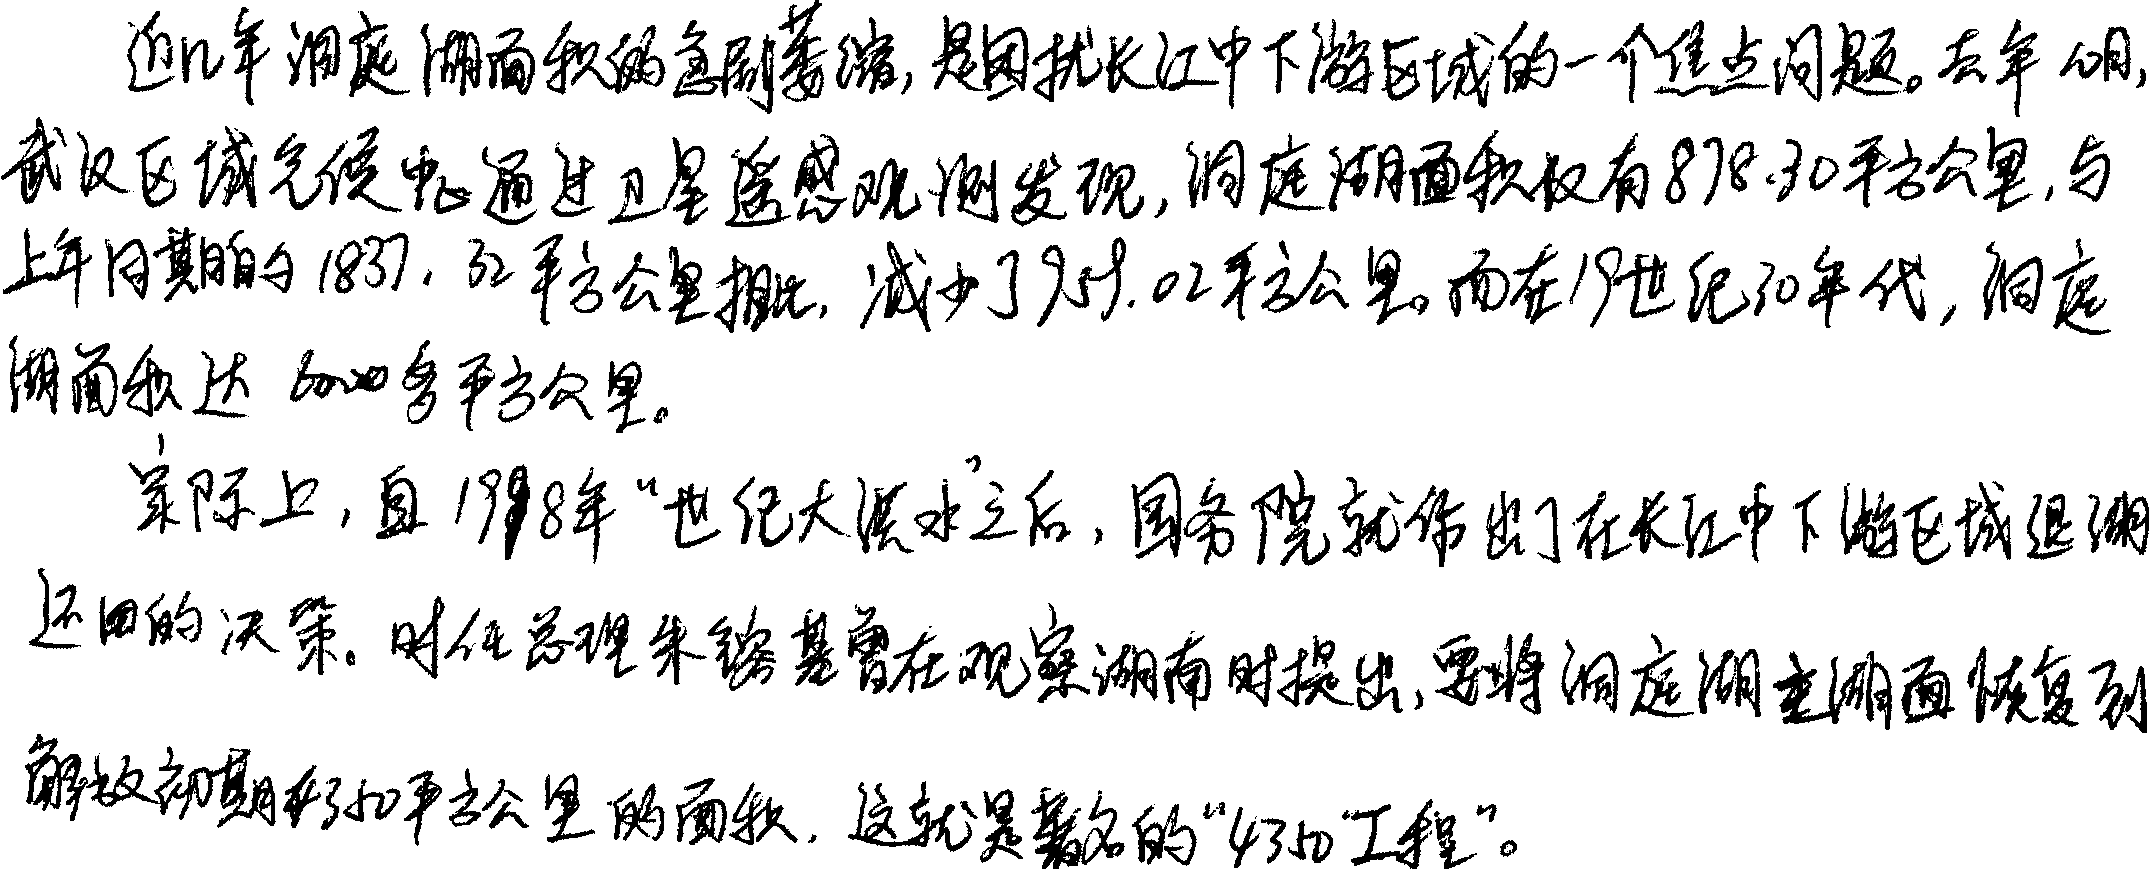 近几年洞庭湖面积的急剧萎缩,是困扰长江中下游区域的一个焦点问题。去年10月,
武汉区域气候中心通过卫星遥感观测发现,洞庭湖面积仅有878.30平方公里,与
上年同期的1837.32平方公里相比,减少了959.02平方公里。而在19世纪30年代,洞庭
湖面积达6000多平方公里。
实际上,自1998年“世纪大洪水”之后,国务院就作出了在长江中下游区域退湖
还田的决策。时任总理朱镕基曾在观察湖南时提出,要将洞庭湖主湖面恢复到
解放初期4350平方公里的面积,这就是著名的“4350工程”。